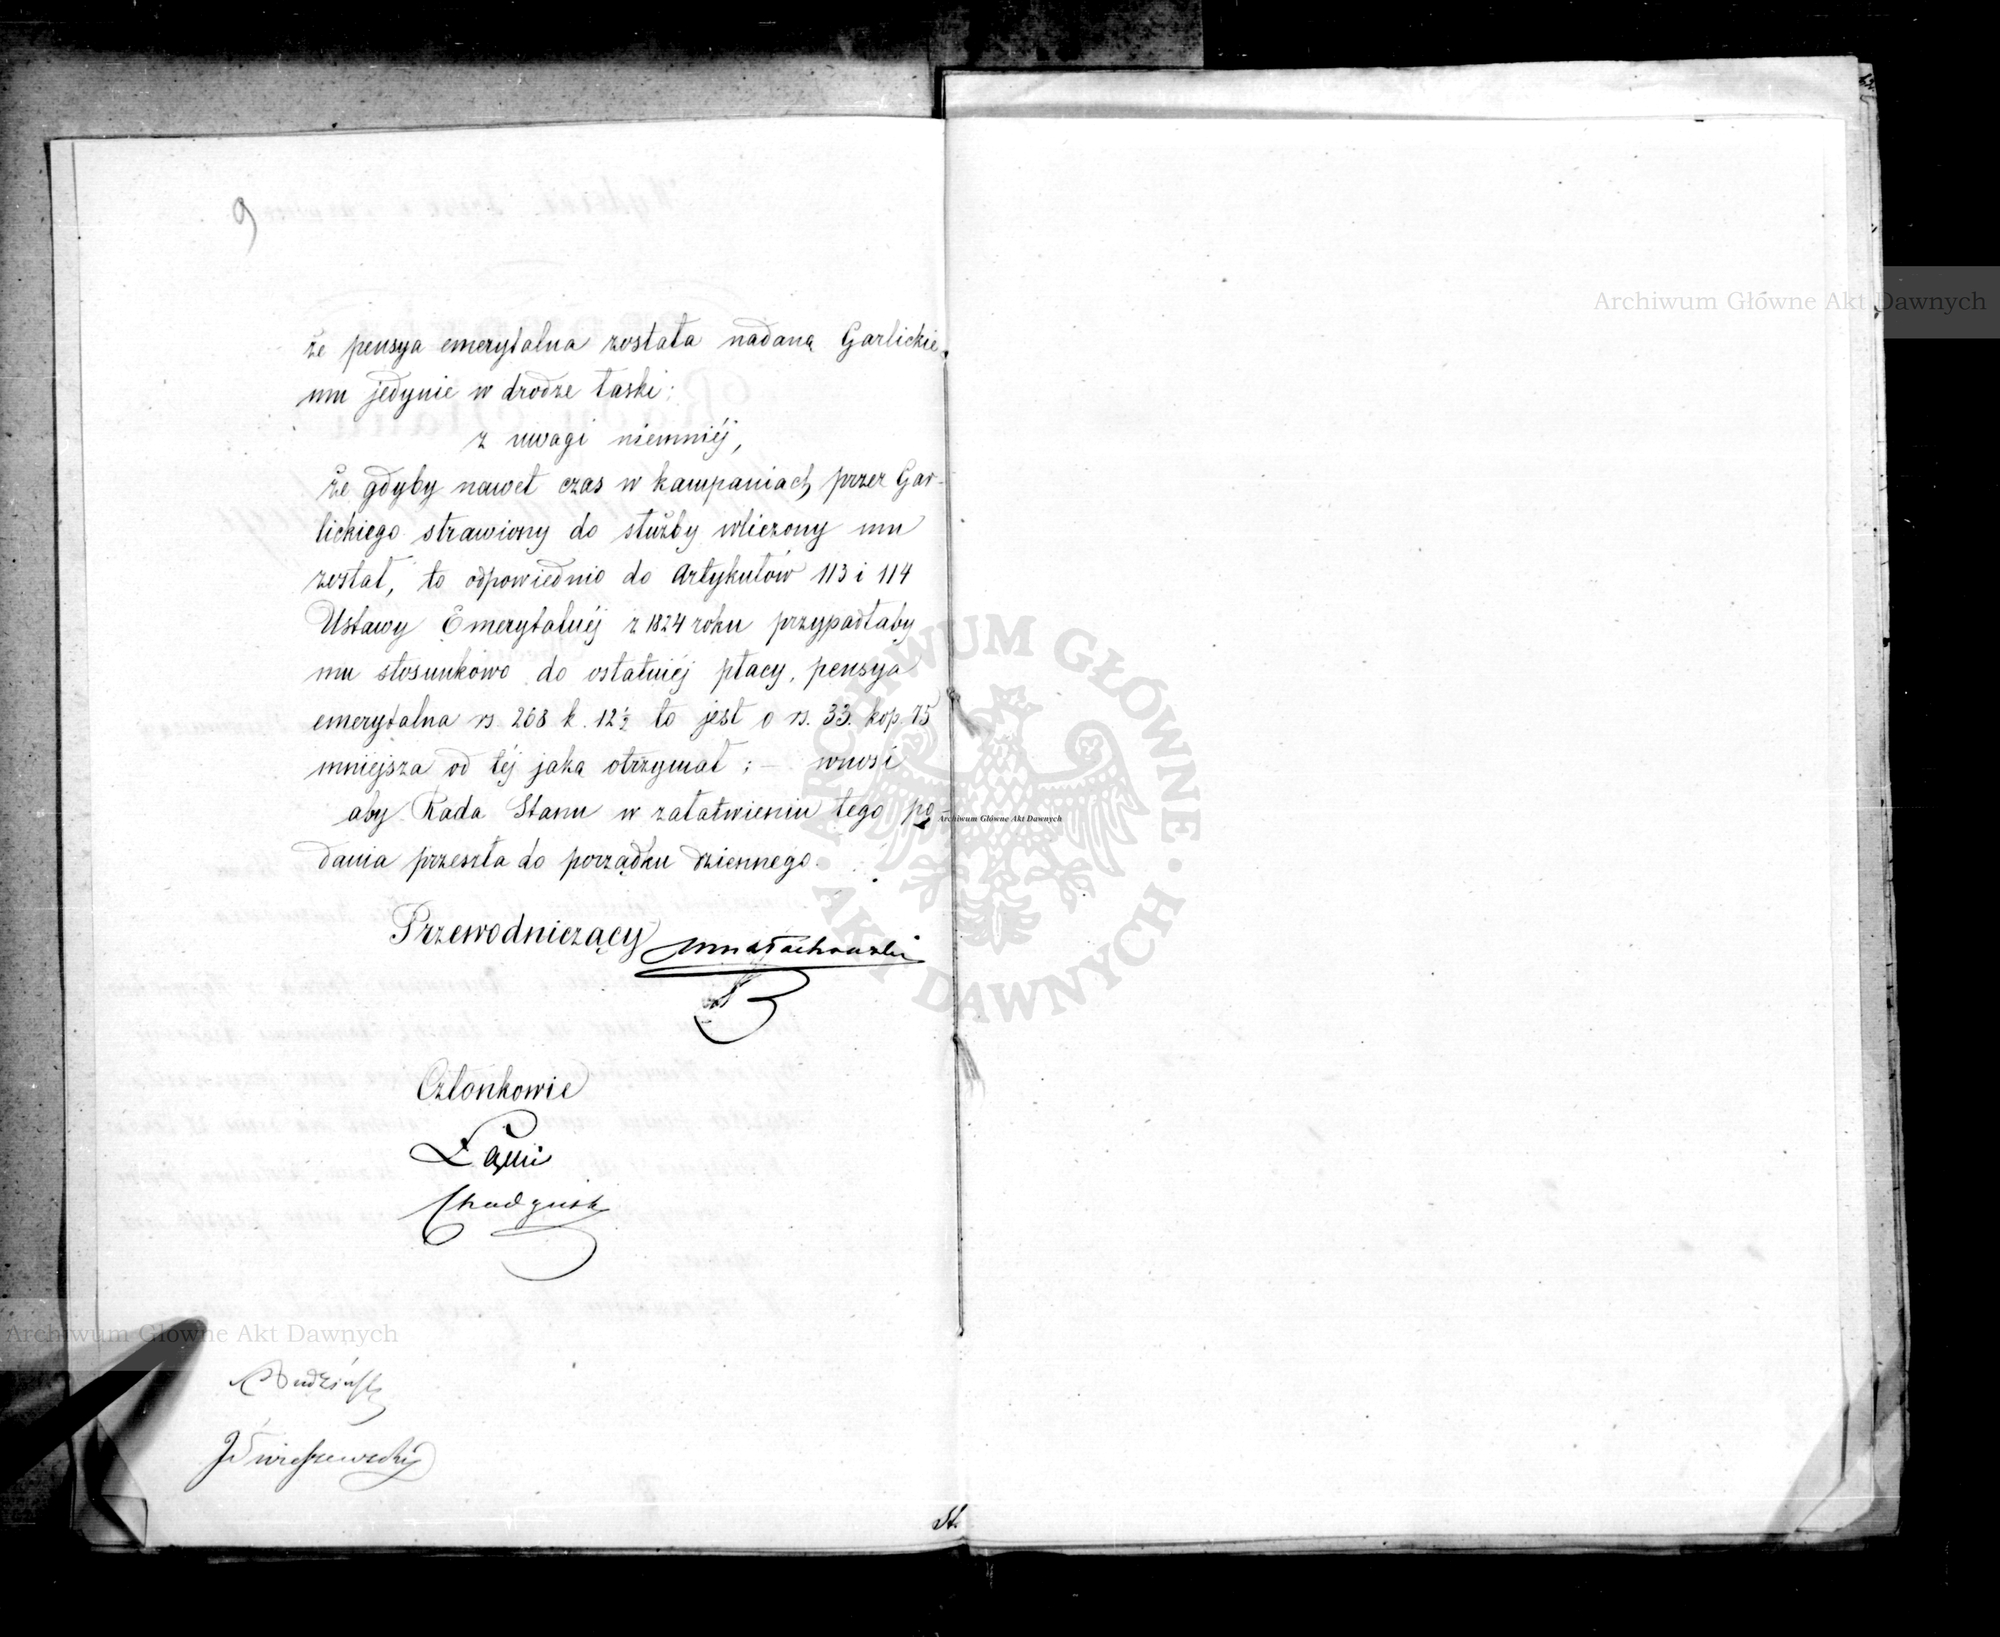 9
że pensya emerytalna została nadaną Garlickie-
mu jedynie w drodze łaski:
z uwagi niemniéj,
że gdyby nawet czas w kampaniach przez Gar-
lickiego strawiony do służby wliczony mu
został, to odpowiednio do Artykułów 113 i 114
Ustawy Emerytalnéj z 1824 roku przypadłaby
mu stosunkowo do ostatniéj płacy, pensya
emerytalna rs. 268 k. 12½ to jest o rs. 33. kop. 75
mniejsza od téj jaką otrzymał; – wnosi
aby Rada Stanu w załatwieniu tego po-
dania przeszła do porządku dziennego.
Przewodniczący Małachowski
Członkowie
Łąski
J Świeszewski
Archiwum Główne Akt Dawnych
Archiwum Główne Akt Dawnych
Archiwum Główne Akt Dawnych
ARCHIWUM GŁÓWNE · AKT DAWNYCH ·